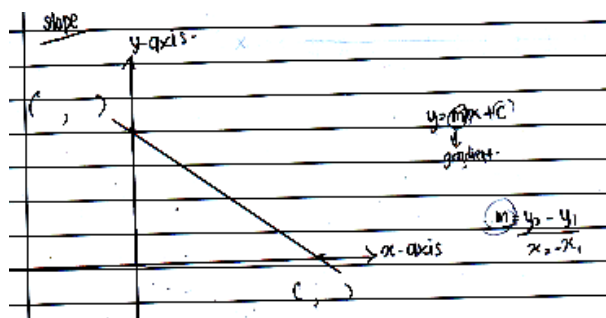 slope
y-axis.
( , )
y = mx + c
gradient.
m = y₂ - y₁
x₂ - x₁
x-axis
( , )